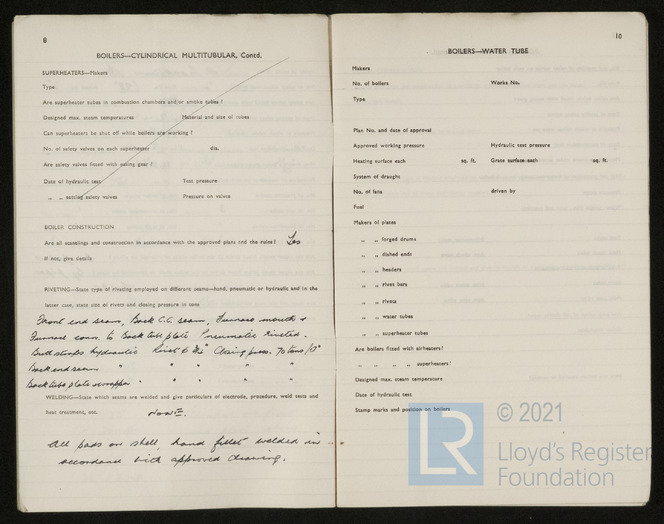 8
BOILERS—CYLINDRICAL MULTITUBULAR, Contd.
SUPERHEATERS—Makers
Type
Are superheater tubes in combustion chambers and/or smoke tubes?
Designed max. steam temperatures Material and size of tubes
Can superheaters be shut off while boilers are working?
No. of safety valves on each superheater dia.
Are safety valves fitted with easing gear?
Date of hydraulic test Test pressure
„ „ setting safety valves Pressure on valves
BOILER CONSTRUCTION
Are all scantlings and construction in accordance with the approved plans and the rules? Yes
If not, give details
RIVETING—State type of riveting employed on different seams—hand, pneumatic or hydraulic and in the
latter case, state size of rivets and closing pressure in tons
Front end seam, Back C.C. seam, Furnace mouth &
Furnace conn. to Back tube plate Pneumatic Riveted.
Butt straps hydraulic Closing press. 70 tons/□"
Back end seam " " " " "
Back tube plate wrapper " " " " "
WELDING—State which seams are welded and give particulars of electrode, procedure, weld tests and
heat treatment, etc. NONE.
All pads on shell hand fillet welded in
accordance with approved drawing.
10
BOILERS—WATER TUBE
Makers
No. of boilers Works No.
Type
Plan No. and date of approval
Approved working pressure Hydraulic test pressure
Heating surface each sq. ft. Grate surface each sq. ft.
System of draught
No. of fans driven by
Fuel
Makers of plates
„ „ forged drums
„ „ dished ends
„ „ headers
„ „ rivet bars
„ „ rivets
„ „ water tubes
„ „ superheater tubes
Are boilers fitted with airheaters?
„ „ „ „ superheaters?
Designed max. steam temperature
Date of hydraulic test
Stamp marks and position on boilers
LR
© 2021
Lloyd's Register
Foundation